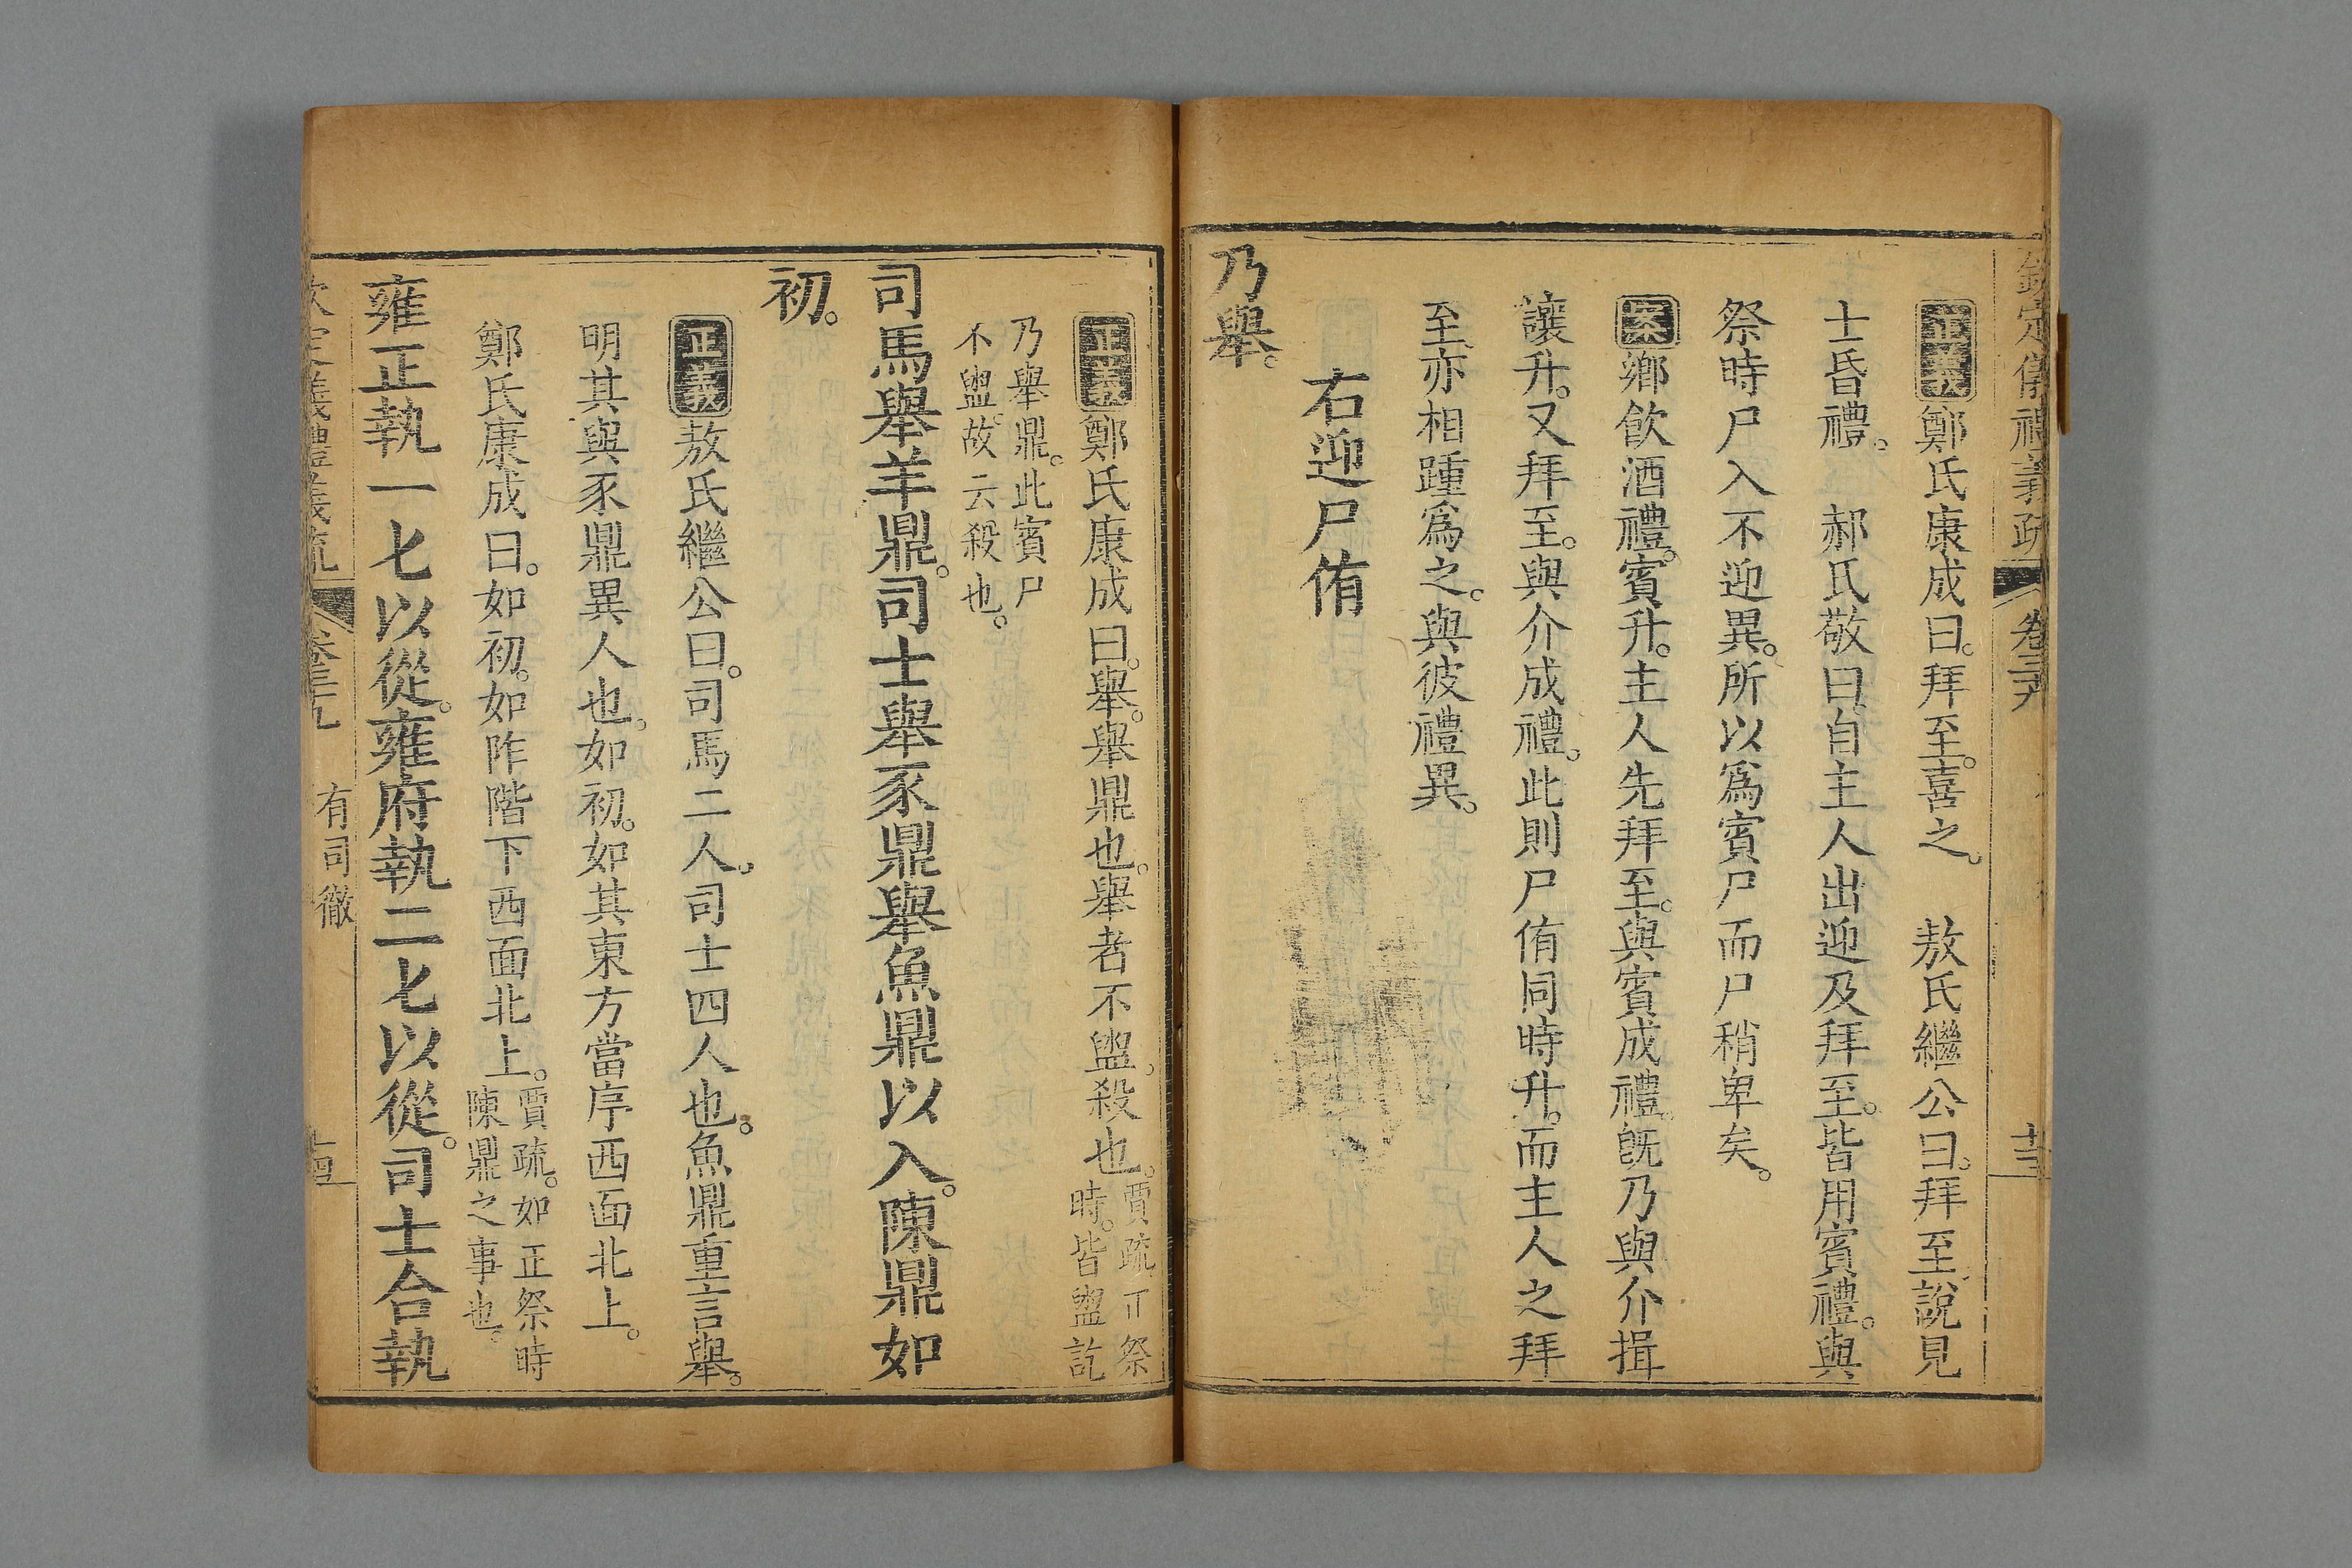 欽定儀禮義疏 卷三十九 十三
正義鄭氏康成曰。拜至。喜之。 敖氏繼公曰。拜至。說見
士昏禮。 郝氏敬曰。自主人出迎及拜至。皆用賓禮。與
祭時尸入不迎異。所以爲賓尸而尸稍卑矣。
案鄉飲酒禮。賓升。主人先拜至。與賓成禮。旣乃與介揖
讓升。又拜至。與介成禮。此則尸侑同時升。而主人之拜
至亦相踵爲之。與彼禮異。
右迎尸侑
乃舉。
正義鄭氏康成曰。舉。舉鼎也。舉者不盥。殺也。賈疏。正祭
時。皆盥訖
乃舉鼎。此賓尸
不盥。故云殺也。
司馬舉羊鼎。司士舉豕鼎舉魚鼎以入。陳鼎如
初。
正義敖氏繼公曰。司馬二人。司士四人也。魚鼎重言舉。
明其與豕鼎異人也。如初。如其東方當序西面北上。
鄭氏康成曰。如初。如阼階下西面北上。賈疏。如正祭時
陳鼎之事也。
雍正執一匕以從。雍府執二匕以從。司士合執
欽定儀禮義疏 卷三十九 有司徹